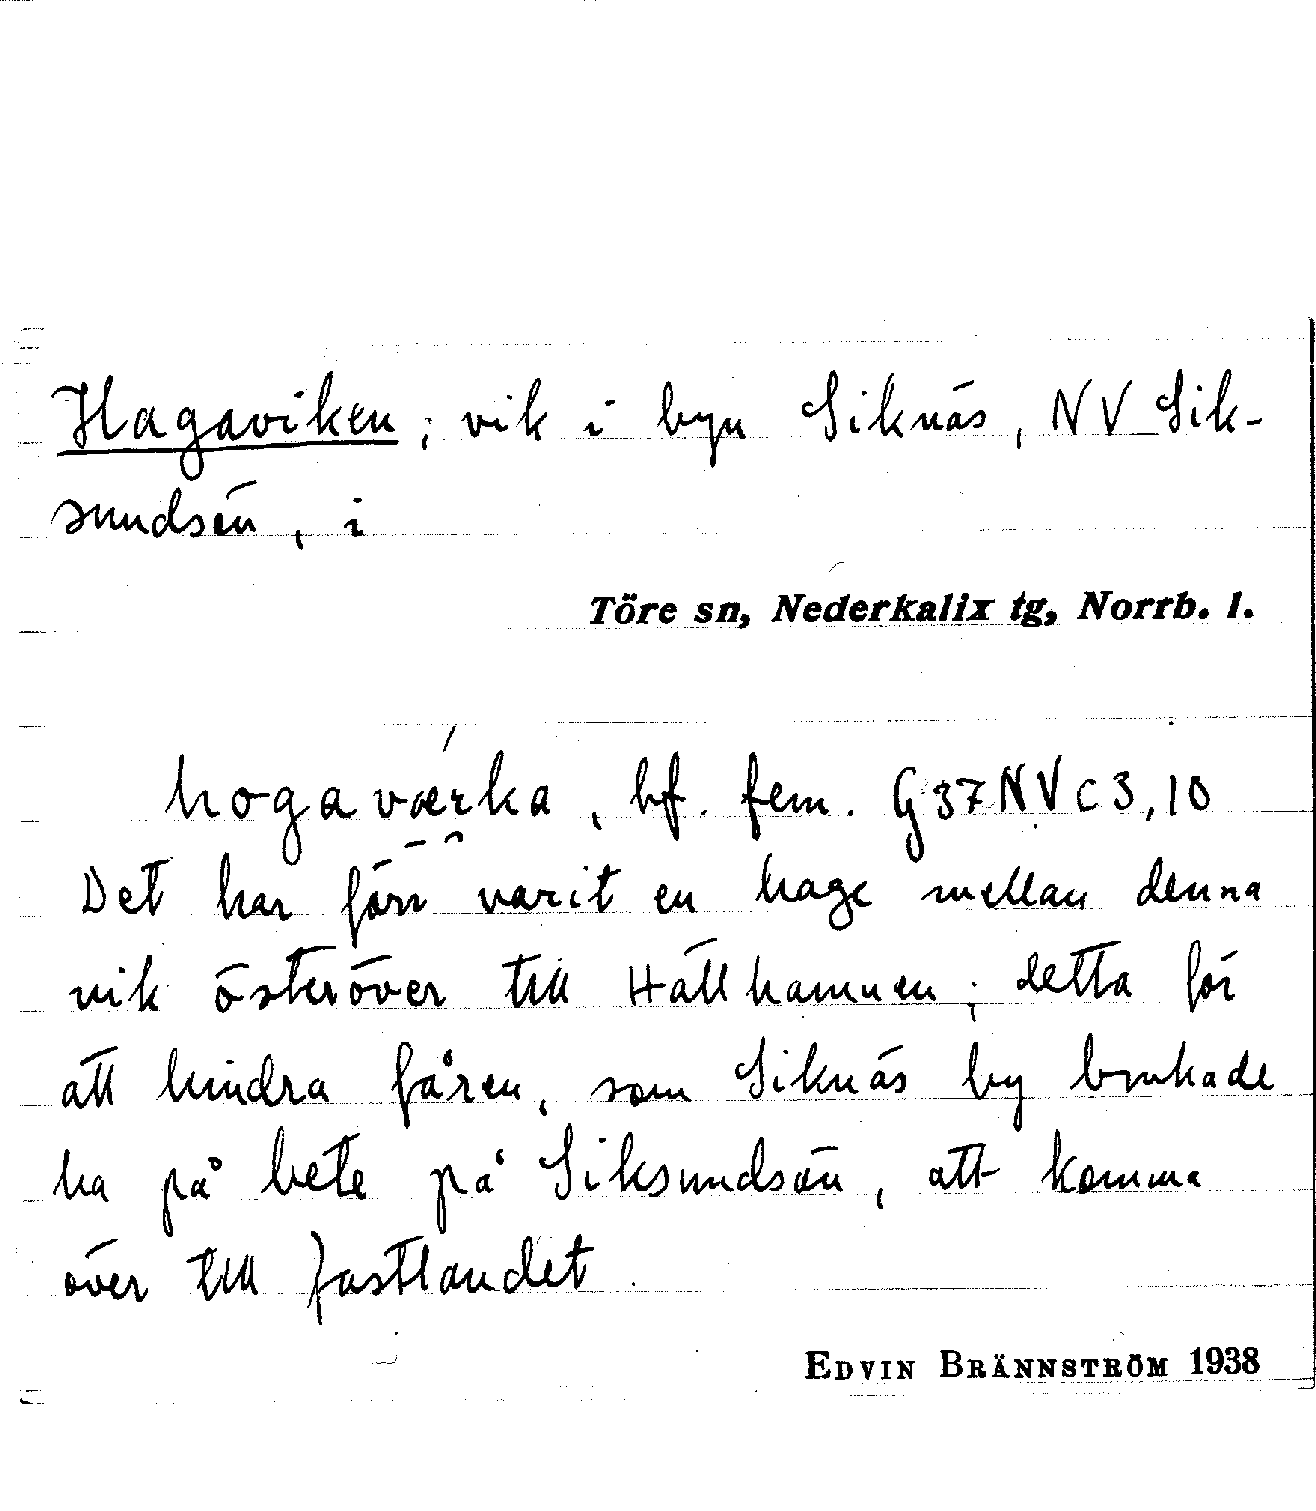 Hagaviken; vik i byn Siknäs, NV Sik-
sundsön, i
Töre sn, Nederkalix tg, Norrb. l.
hogaværka, bf. fem. G37NVc3,10
Det har förr varit en hage mellan denna
vik österöver till Hällhamnen; detta för
att hindra fåren, som Siknäs by brukade
ha på bete på Siksundsön, att komma
över till fastlandet.
EDVIN BRÄNNSTRÖM 1938